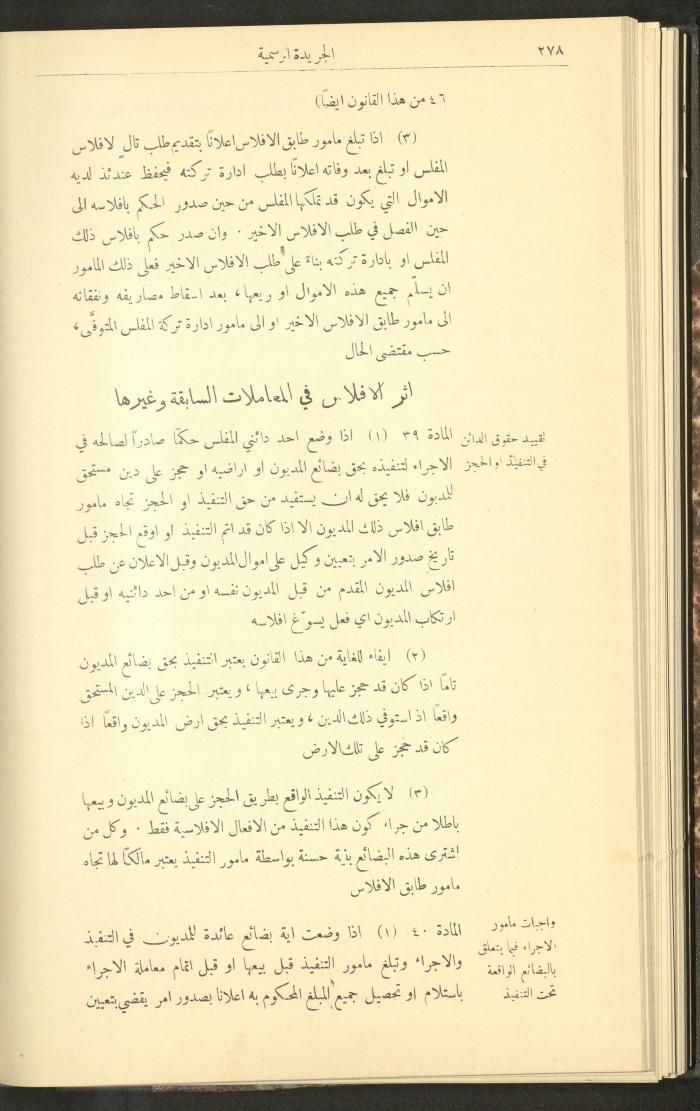 ٢٧٨
الجريدة الرسمية
٤٦ من هذا القانون ايضاً)
(٣) اذا تبلغ مامور طابق الافلاس اعلانا بتقديم طلب تالٍ لافلاس
المفلس او تبلغ بعد وفاته اعلانا بطلب ادارة تركته فيحفظ عندئذ لديه
الاموال التي يكون قد تملكها المفلس من حين صدور الحكم بافلاسه الى
حين الفصل في طلب الافلاس الاخير . وان صدر حكم بافلاس ذلك
المفلس او بادارة تركته بناءً على طلب الافلاس الاخير فعلى ذلك المامور
ان يسلّم جميع هذه الاموال او ريعها، بعد اسقاط مصاريفه ونفقاته
الى مامور طابق الافلاس الاخير او الى مامور ادارة تركة المفلس المتوفَّى،
حسب مقتضى الحال
اثر الافلاس في المعاملات السابقة وغيرها
تقييد حقوق الدائن
في التنفيذ او الحجز
المادة ٣٩ (١) اذا وضع احد دائني المفلس حكمًا صادراً لصالحه في
الاجراء لتنفيذه بحق بضائع المديون او اراضيه او حجز على دين مستحق
للمديون فلا يحق له ان يستفيد من حق التنفيذ او الحجز تجاه مامور
طابق افلاس ذلك المديون الا اذا كان قد اتم التنفيذ او اوقع الحجز قبل
تاريخ صدور الامر بتعيين وكيل على اموال المديون وقبل الاعلان عن طلب
افلاس المديون المقدم من قبل المديون نفسه او من احد دائنيه او قبل
ارتكاب المديون اي فعل يسوّغ افلاسه
(٢) ايفاء للغاية من هذا القانون يعتبر التنفيذ بحق بضائع المديون
تامًا اذا كان قد حجز عليها وجرى بيعها، ويعتبر الحجز على الدين المستحق
واقعًا اذ استوفي ذلك الدين، ويعتبر التنفيذ بحق ارض المديون واقعًا اذا
كان قد حجز على تلك الارض
(٣) لا يكون التنفيذ الواقع بطريق الحجز على بضائع المديون وبيعها
باطلا من جراء كون هذا التنفيذ من الافعال الافلاسية فقط . وكل من
اشترى هذه البضائع بنية حسنة بواسطة مامور التنفيذ يعتبر مالكًا لها تجاه
مامور طابق الافلاس
واجبات مامور
الاجراء فيما يتعلق
بالبضائع الواقعة
تحت التنفيذ
المادة ٤٠ (١) اذا وضعت اية بضائع عائدة للمديون في التنفيذ
والاجراء وتبلغ مامور التنفيذ قبل بيعها او قبل اتمام معاملة الاجراء
باستلام او تحصيل جميع المبلغ المحكوم به اعلانا بصدور امر يقضي بتعيين